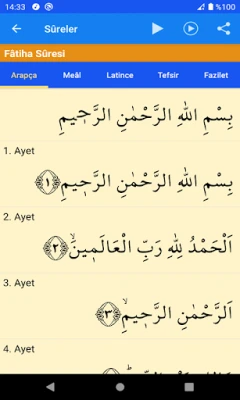 14:33 %100
Sûreler
Fâtiha Sûresi
Arapça Meâl Latince Tefsir Fazilet
بِسْمِ اللهِ الرَّحْمٰنِ الرَّحٖيمِ
1. Ayet
بِسْمِ اللهِ الرَّحْمٰنِ الرَّحٖيمِ ﴿١﴾
2. Ayet
اَلْحَمْدُ لِلّٰهِ رَبِّ الْعَالَمٖينَۙ ﴿٢﴾
3. Ayet
اَلرَّحْمٰنِ الرَّحٖيمِۙ ﴿٣﴾
4. Ayet